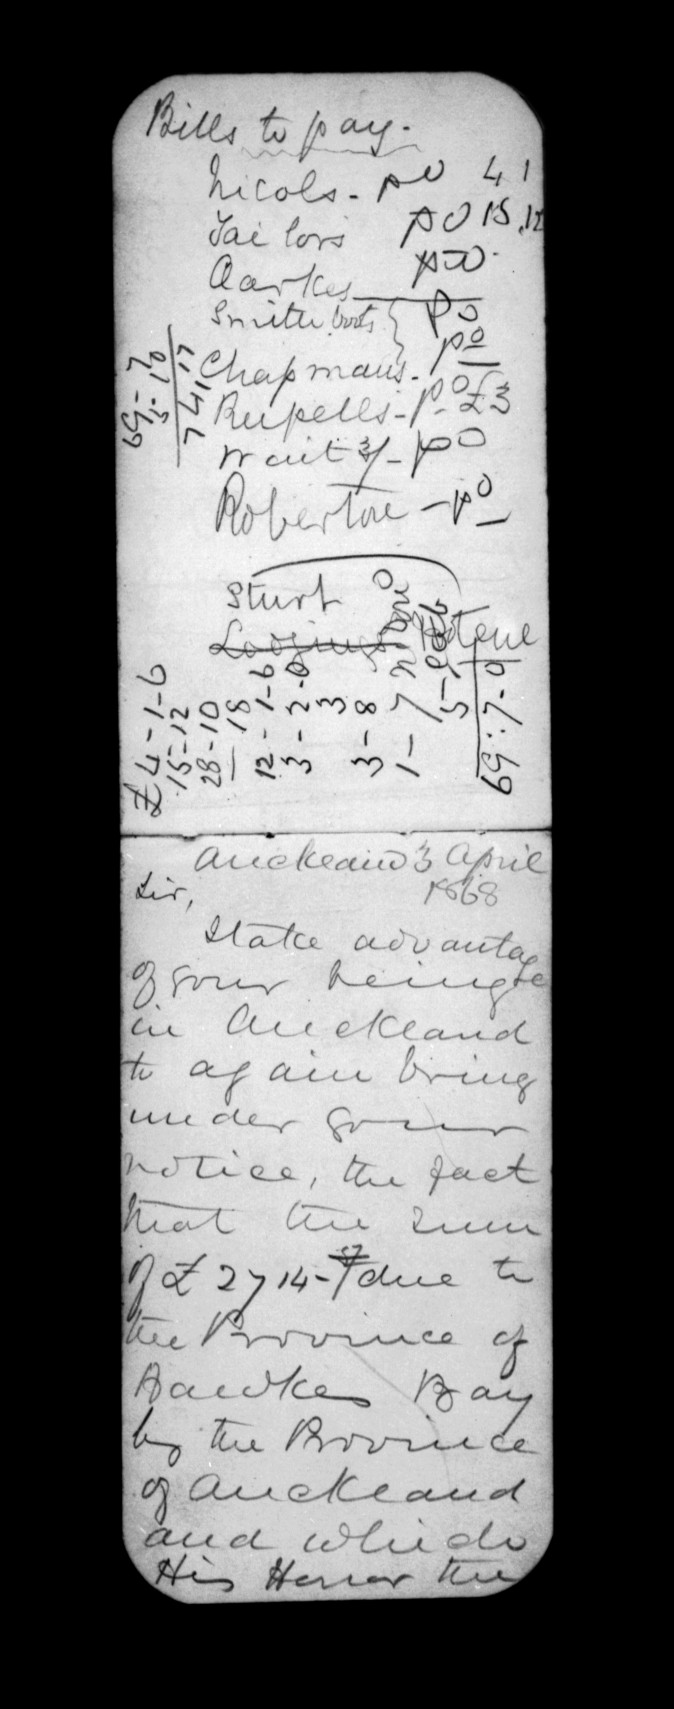 Bills to pay.
Nicols - pd 4 1
Tailors pd 15.12
Smith boots pd
Chapmans - pd
pd £3
pd
pd
Sturt
Lodgings
£4-1-6
15-12
28-10
18
12-1-6
3-2-0
3
3-8
1-7
5-
69:7-0
Auckland 3 April
1868
Sir,
I take advantage
of your being
in Auckland
to again bring
under your
notice, the fact
that the sum
of £2714- due to
the Province of
Hawkes Bay
by the Province
of Auckland
and which
His Honor the